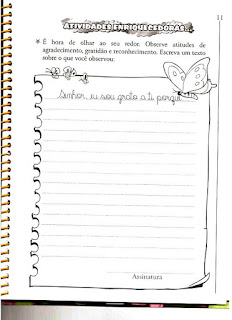 11
ATIVIDADES ENRIQUECEDORAS
* É hora de olhar ao seu redor. Observe atitudes de
agradecimento, gratidão e reconhecimento. Escreva um texto
sobre o que você observou:
Senhor, eu sou grato a ti porque
Assinatura